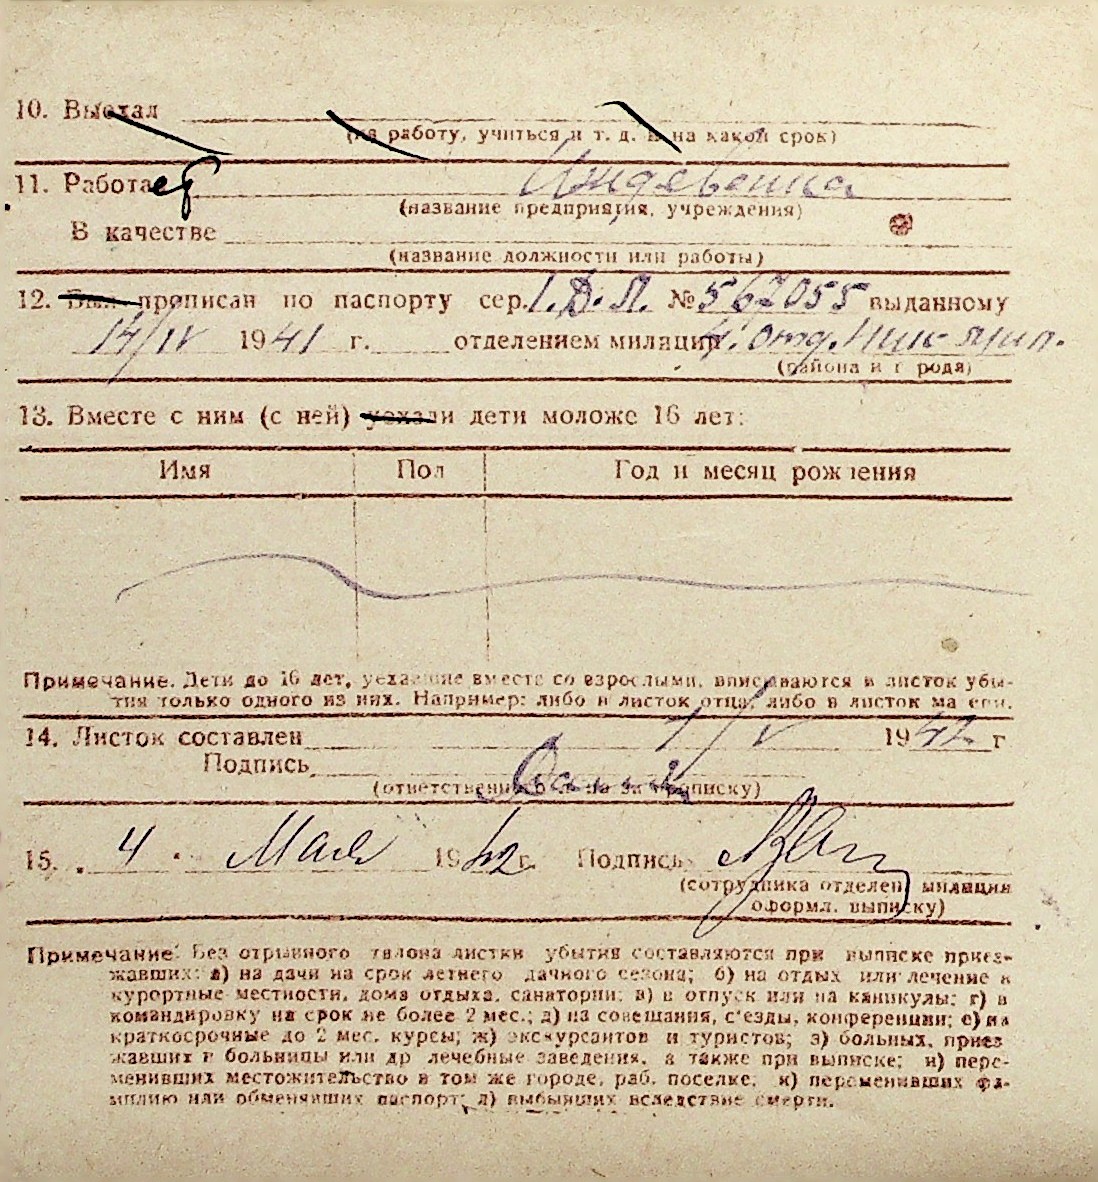 10. Выехал
(на работу, учиться и т. д. и на какой срок)
11. Работает Иждевенка
(название предприятия, учреждения)
В качестве
(название должности или работы)
12. Был прописан по паспорту сер. I. Д. Л. № 567055 выданному
14/IV 1941 г. отделением милиции 4. отд.
(района и города)
13. Вместе с ним (с ней) уехали дети моложе 16 лет:
Имя Пол Год и месяц рождения
Примечание. Дети до 16 лет, уехавшие вместе со взрослыми, вписываются в листок убы-
тия только одного из них. Например: либо в листок отца, либо в листок матери.
14. Листок составлен 1/V 1942 г
Подпись
(ответственного лица за прописку)
15. 4 Мая 1942 г. Подпись
(сотрудника отделен. милиции
оформл. выписку)
Примечание: Без отрывного талона листки убытия составляются при выписке приез-
жавших: а) на дачи на срок летнего дачного сезона; б) на отдых или лечение в
курортные местности, дома отдыха, санатории; в) в отпуск или на каникулы; г) в
командировку на срок не более 2 мес.; д) на совещания, с'езды, конференции; е) на
краткосрочные до 2 мес. курсы; ж) экскурсантов и туристов; з) больных, приез
жавших в больницы или др лечебные заведения, а также при выписке; и) пере-
менивших местожительство в том же городе, раб. поселке; к) переменивших фа-
милию или обменявших паспорт; л) выбывших вследствие смерти.